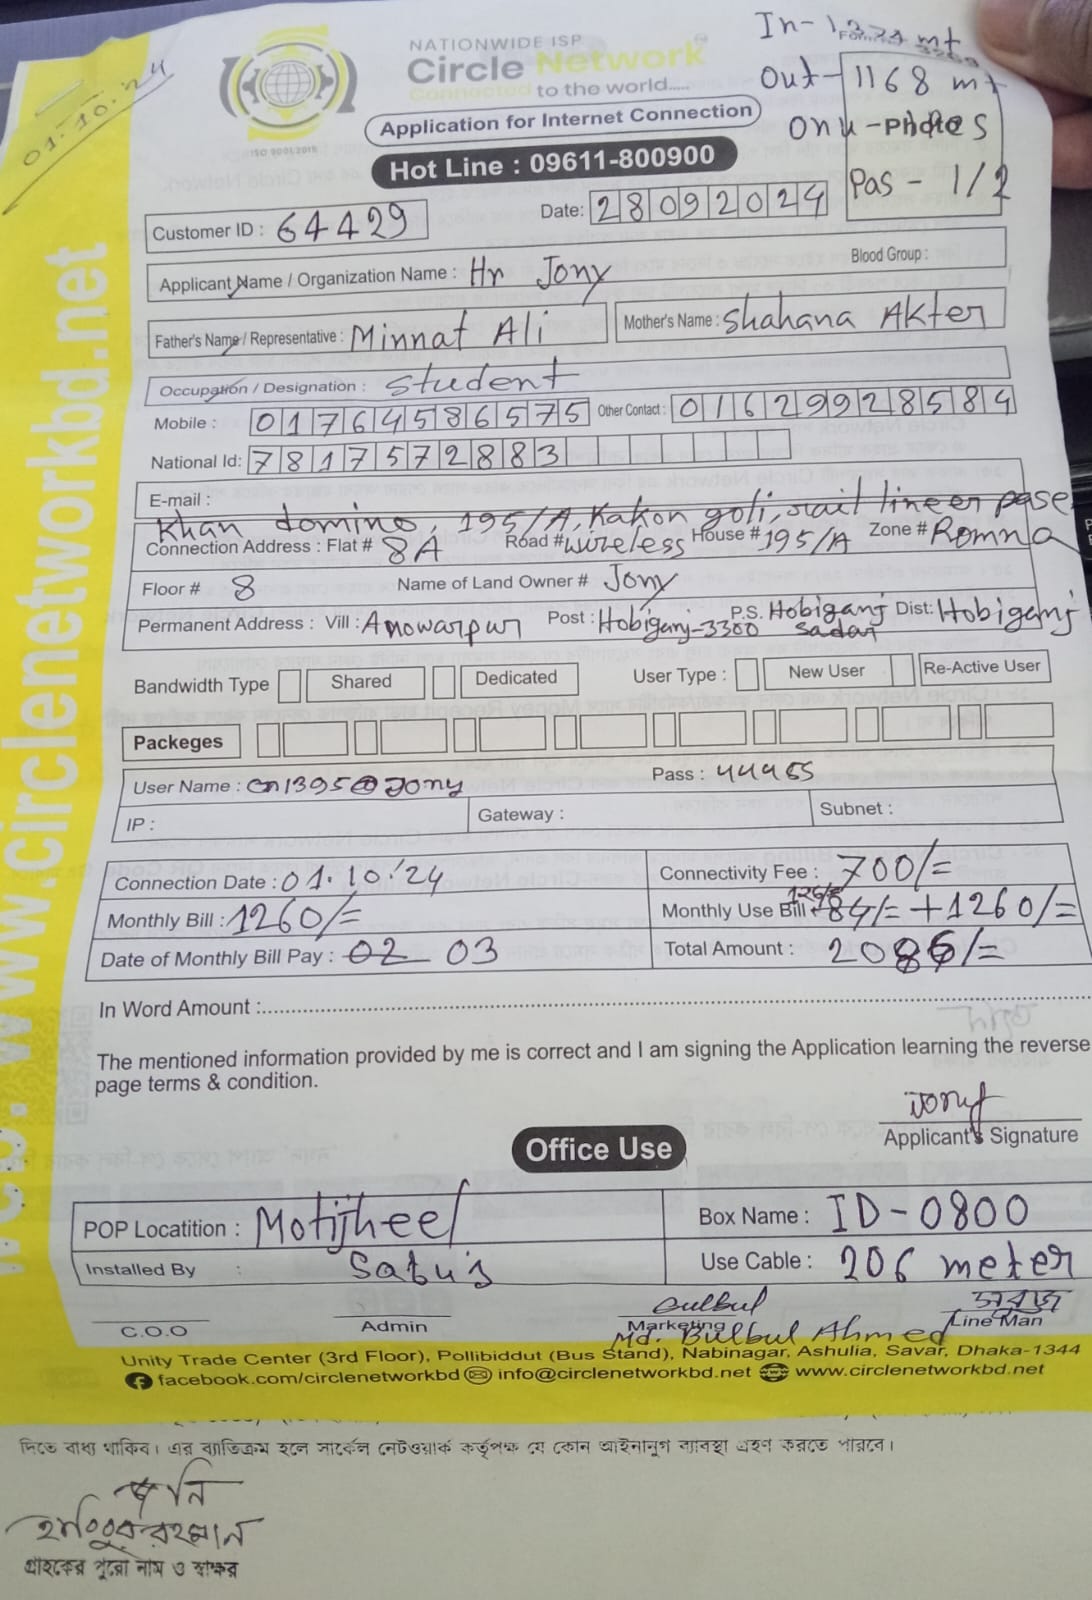 01.10.24
NATIONWIDE ISP
Circle Network
Connected to the world.....
ISO 9001:2015
In - mt
Out - 1168 mt
Onu - Photos
Pas - 1/2
Application for Internet Connection
Hot Line : 09611-800900
Customer ID : 64429
Date: 28092024
Applicant Name / Organization Name : Hr Jony
Blood Group :
Father's Name / Representative : Minnat Ali
Mother's Name : Shahana Akter
Occupation / Designation : Student
Mobile : 01764586575 Other Contact : 01629928584
National Id: 7817572883
E-mail :
Khan domino, 195/A, Kakon goli, rail lineer pase
Connection Address : Flat # 8A Road # wireless House # 195/A Zone # Romna
Floor # 8 Name of Land Owner # Jony
Permanent Address : Vill : Anowarpur Post : Hobiganj-3300 P.S. Hobiganj Sadar Dist: Hobiganj
Bandwidth Type Shared Dedicated User Type : New User Re-Active User
Packeges
User Name : cn1395@Jony Pass : 44455
IP : Gateway : Subnet :
Connection Date : 01.10.'24 Connectivity Fee : 700/=
Monthly Bill : 1260/= Monthly Use Bill : 84/= + 1260/=
Date of Monthly Bill Pay : 02 03 Total Amount : 2086/=
In Word Amount :
The mentioned information provided by me is correct and I am signing the Application learning the reverse
page terms & condition.
Jony
Applicant's Signature
Office Use
POP Locatition : Motijheel Box Name : ID-0800
Installed By : Use Cable : 206 meter
Bulbul সবুজ
C.O.O Admin Marketing Line Man
Md. Bulbul Ahmed
Unity Trade Center (3rd Floor), Pollibiddut (Bus Stand), Nabinagar, Ashulia, Savar, Dhaka-1344
facebook.com/circlenetworkbd info@circlenetworkbd.net www.circlenetworkbd.net
www.circlenetworkbd.net
দিতে বাধ্য থাকিব। এর ব্যতিক্রম হলে সার্কেল নেটওয়ার্ক কর্তৃপক্ষ যে কোন আইনানুগ ব্যবস্থা গ্রহণ করতে পারবে।
গ্রাহকের পুরো নাম ও স্বাক্ষর